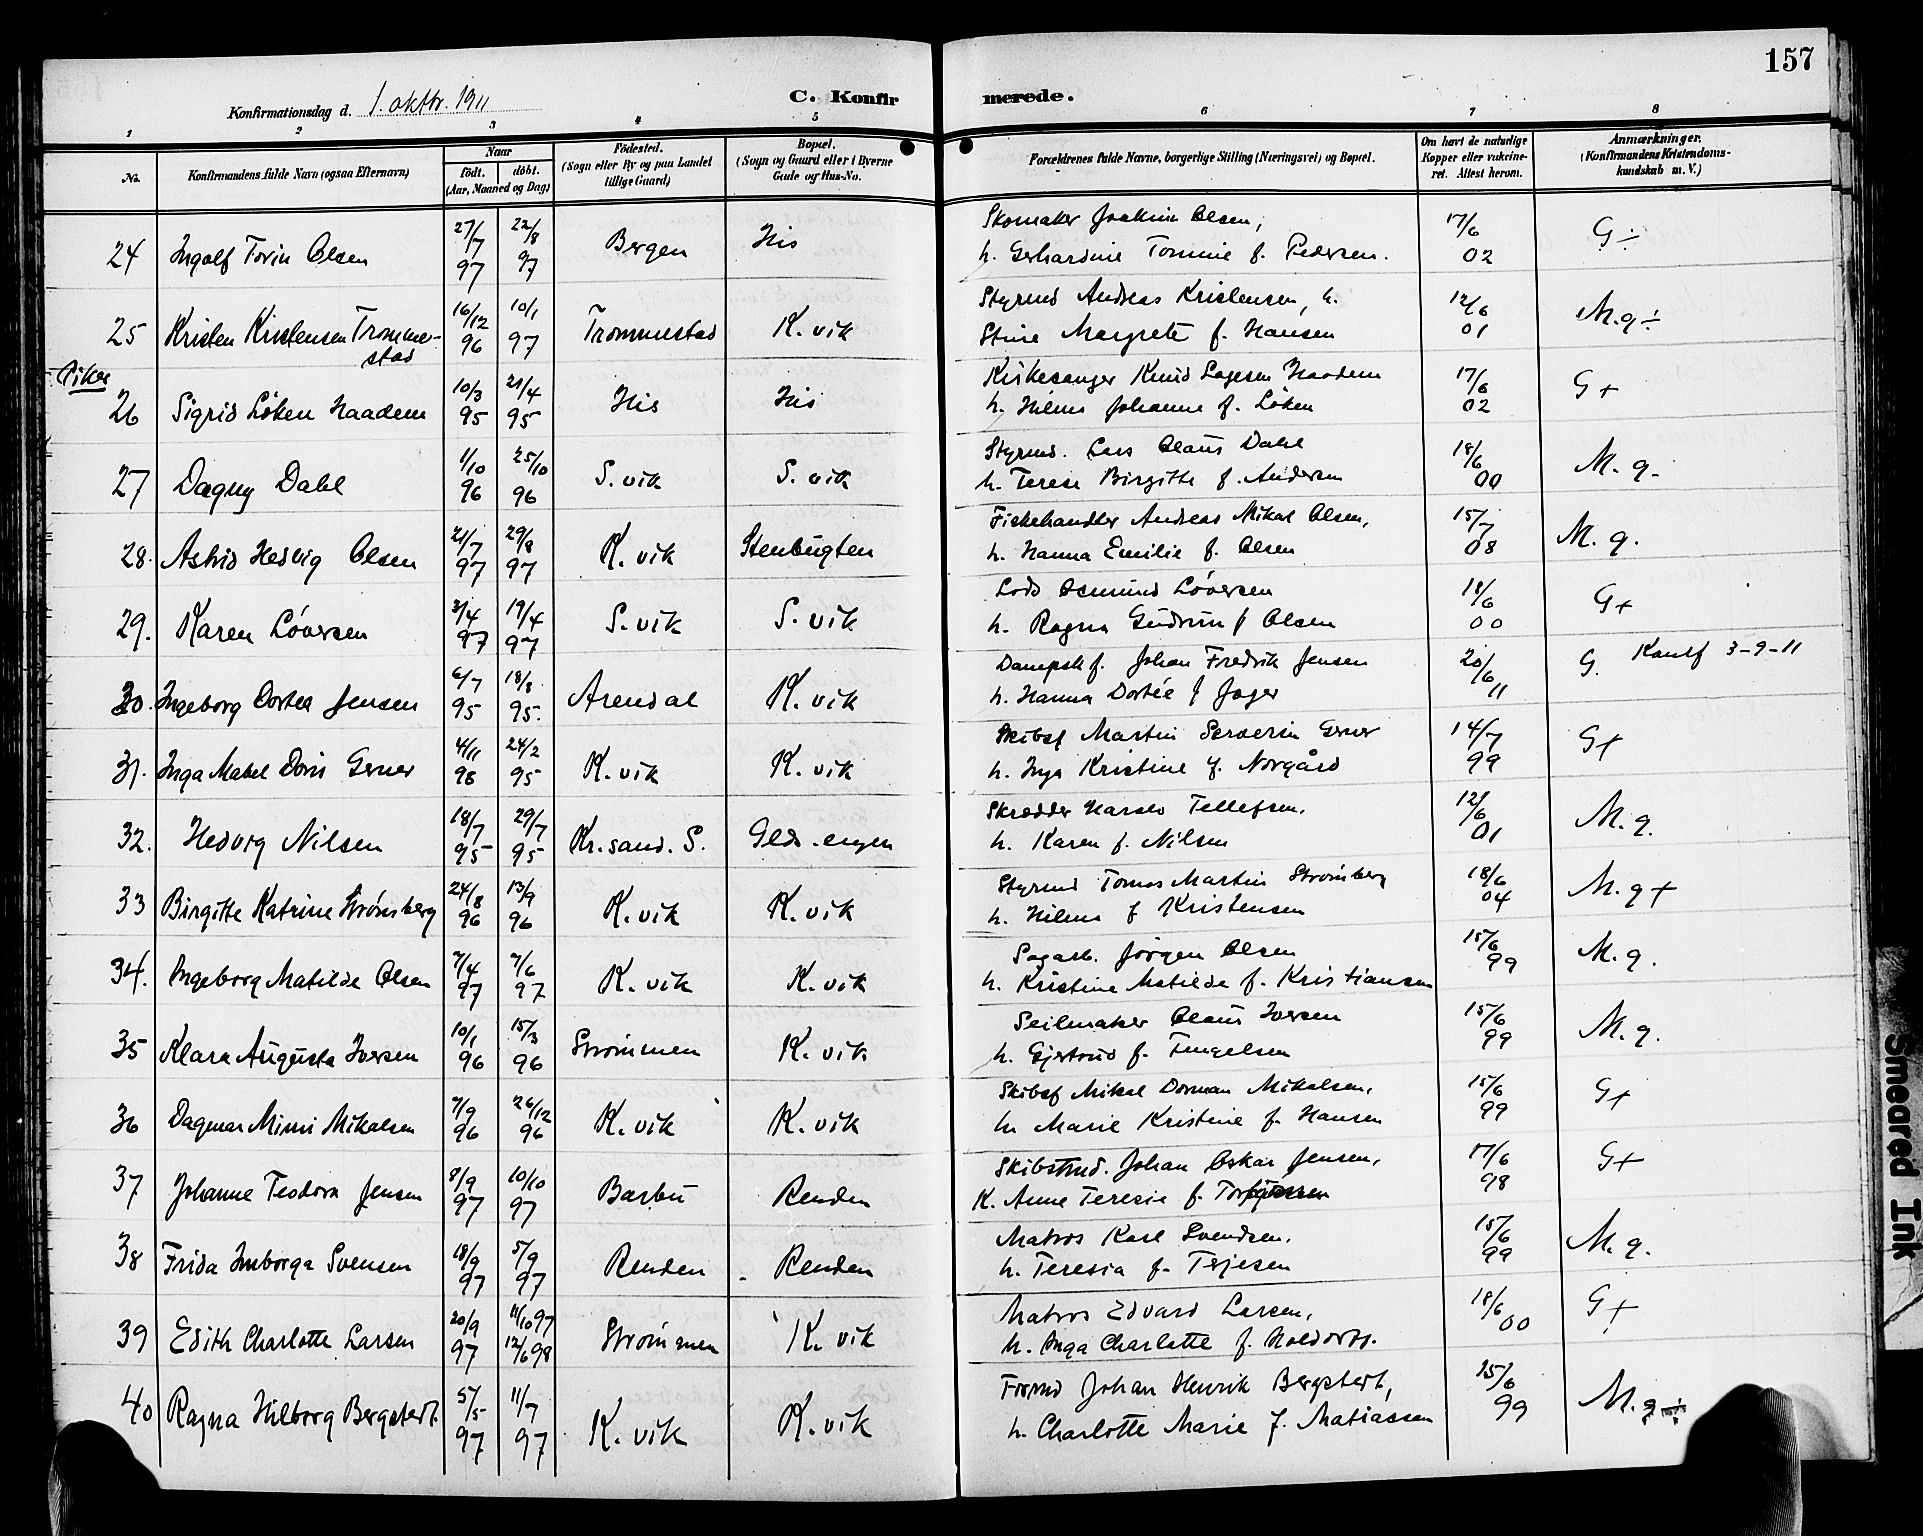 157
Konfirmationsdag d. 1. oktbr. 1911
C. Konfirmerede.
1 2 3 4 5 6 7 8
No.
Konfirmandens fulde Navn (ogsaa Efternavn)
Naar
født. døbt.
(Aar, Maaned og Dag)
Födested.
(Sogn eller By og paa Landet
tillige Gaard)
Bopæl.
(Sogn og Gaard eller i Byerne
Gade og Hus-No.
Forældrenes fulde Navne, borgerlige Stilling (Næringsvei) og Bopæl.
Om havt de naturlige
Kopper eller vakcine-
ret. Attest herom.
Anmærkninger.
(Konfirmandens Kristendoms-
kundskab m. V.)
24 Ingolf Torin Olsen 27/7 97 22/8 97 Bergen His Skomaker Joakim Olsen, 17/6 02 G÷
h. Gerhardine Tomine f. Pedersen.
25 Kristen Kristensen Tromme-
stad 16/12 96 10/1 97 Trommestad K. vik Styrmd Andreas Kristensen, h. 12/6 01 M.g÷
Stine Margrete f. Hansen
Piker
26 Sigrid Löken Haadem 10/3 95 21/4 95 His His Kirkesanger Knud Haadem 17/6 02 G+
h. Hilma Johanne f. Löken
27 Dagny Dahl 1/10 96 25/10 96 S. vik S. vik Styrmd. Lars Claus Dahl 18/6 00 M. g-
h. Terese Birgitte f. Andersen
28. Astrid Hedvig Olsen 21/7 97 29/8 97 K. vik Stenbugten Fiskehandler Andreas Mikal Olsen, 15/7 08 M. g.
h. Hanna Emilie f. Olsen
29. Karen Löversen 3/4 97 19/4 97 S. vik S. vik Lods Osmund Löversen 18/6 00 G+
h. Ragna Gudrun f Olsen
30. Ingeborg Dortea Jensen 6/7 95 18/8 95. Arendal K. vik Dampsk f. Johan Fredrik Jensen 20/6 11 G. Konf 3-9-11
h. Hanna Dortée f Jager
31. Inga Mabel Doris Gerner 4/11 96 24/2 95 K. vik K. vik Skibsf Martin Severin Gerner 14/7 99 G+
h. Inga Kristine f. Norgård
32. Hedvig Nilsen 18/7 95 29/7 95 Kr.sand. S. Gld.engen Skrædder Tellefsen. 12/6 01 M. g.
h. Karen f. Nilsen
33 Birgitte Katrine Strömsberg 24/8 96 13/9 96 K. vik K. vik Styrmd Tomas Martin Strömsberg 18/6 04 M. g+
h. Hilma f Kristensen
34. Ingeborg Matilde Olsen 7/4 97 7/6 97 K. vik K. vik Sagarb. Jörgen Olsen 15/6 99 M. g.
h. Kristine Matilde f. Kristiansen
35 Klara Augusta Iversen 10/1 96 15/3 96 Strömmen K. vik Seilmaker Claus Iversen 15/6 99 M. g.
h. Gjertrud f. Tingelsen
36 Dagmar Mimi Mikalsen 7/9 96 26/12 96 K. vik K. vik Skibsf Mikal Dorman Mikalsen, 15/6 99 G+
h. Marie Kristine f. Hansen
37 Johanne Teodora Jensen 8/9 97 10/10 97 Barbu Renden Skibstmd. Johan Oskar Jensen, 17/6 98 G+
K. Anne Teresie f.
38 Frida Imborga Svensen 18/9 97 5/9 97 Renden Renden Matros Karl Svendsen. 15/6 99 M. g.
h. Teresia f. Terjesen
39 Edith Charlotte Larsen 20/9 97 11/10 97 12/6 98 Strömmen K. vik Matros Edvard Larsen, 18/6 00 G+
h. Inga Charlotte f.
40 Ragna Hilborg Bergstert. 5/5 97 11/7 97 K. vik K. vik Johan Henrik Bergstert, 15/6 99 M.g
h. Charlotte Marie f. Matiassen
Smeared Ink